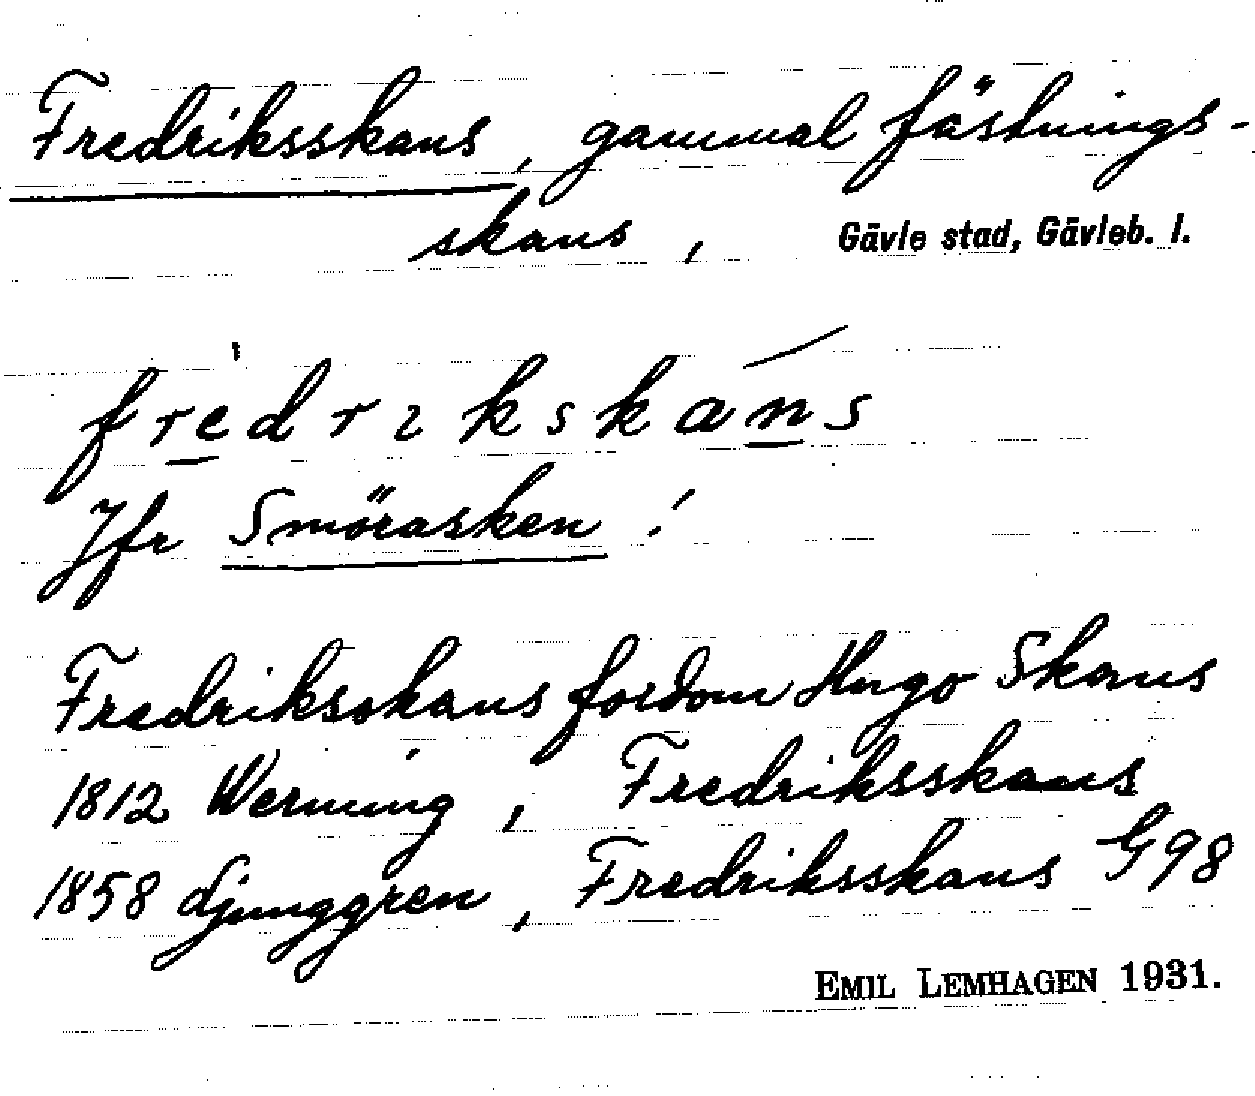 Fredriksskans, gammal fästnings-
skans, Gävle stad, Gävleb. l.
fredrikskans
Jfr Smörasken!
Fredriksskans fordom Hugo Skans
1812 Werming, Fredriksskans
1858 Ljunggren, Fredriksskans G98
EMIL LEMHAGEN 1931.